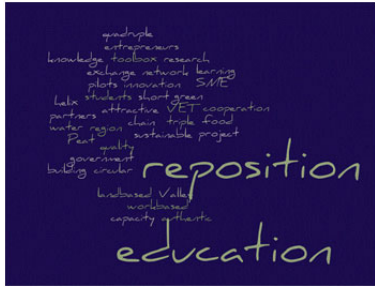 quadruple
entrepreneurs
knowledge toolbox research
exchange network learning
pilots innovation SME
helix students short green
partners attractive VET cooperation
chain triple food
water region sustainable project
Peat
quality
government
building circular reposition
landbased Valley
workbased
capacity authentic
education